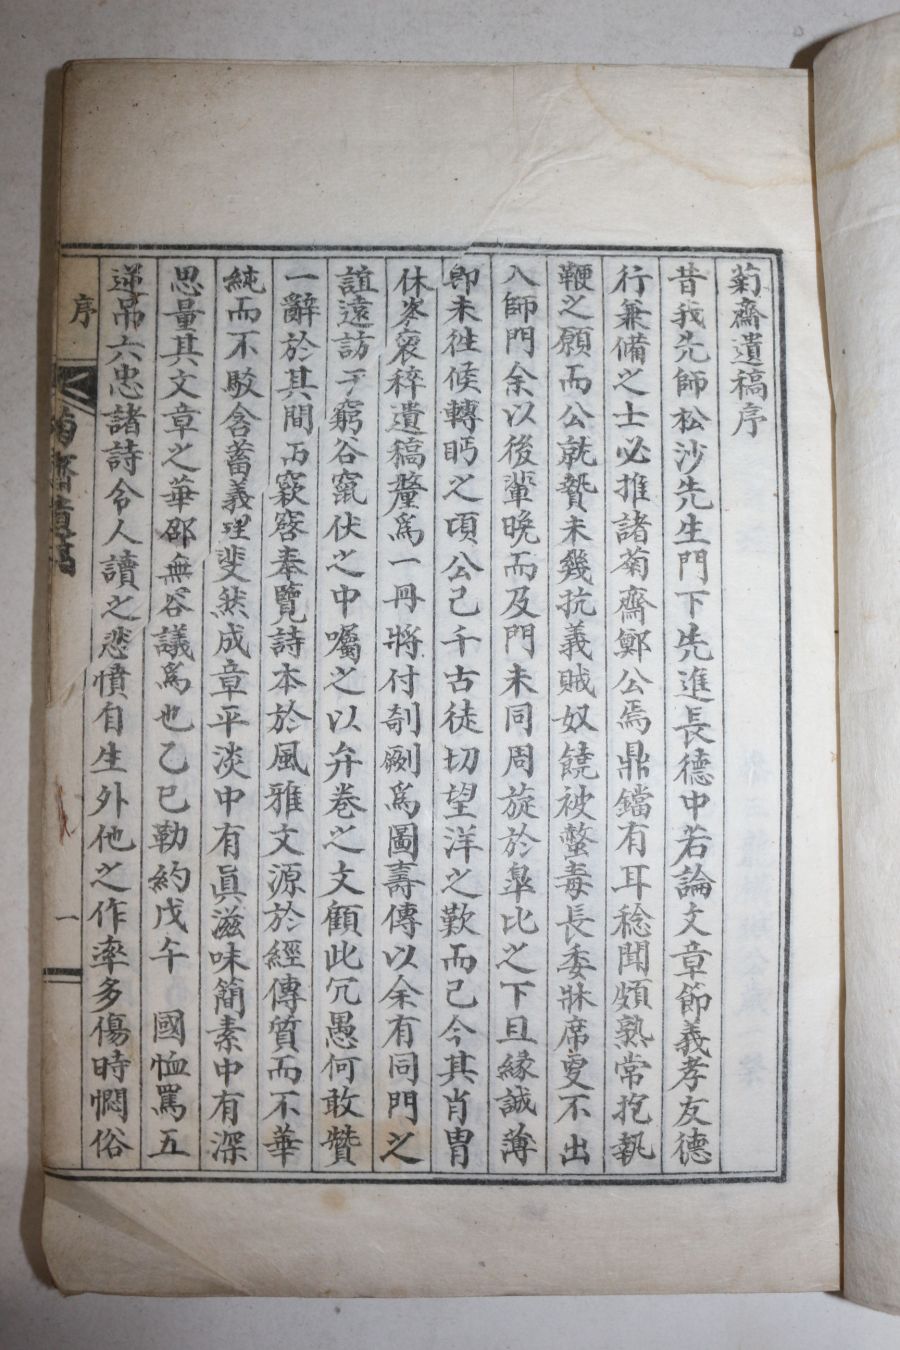 菊齋遺稿序
昔我先師松沙先生門下先進長德中若論文章節義孝友德
行兼備之士必推諸菊齋鄭公焉鼎鐺有耳稔聞頗熟常抱執
鞭之願而公就贄未幾抗義賊奴饒被螫毒長委牀席更不出
入師門余以後輩晚而及門未同周旋於臯比之下且緣誠薄
卽未徃候轉眄之頃公已千古徒切望洋之歎而已今其肖胄
休峯裒稡遺稿釐爲一冊將付剞劂爲圖壽傳以余有同門之
誼遠訪于窮谷竄伏之中囑之以弁卷之文顧此冗愚何敢贊
一辭於其間而窾窾奉覽詩本於風雅文源於經傳質而不華
純而不駁含蓄義理斐然成章平淡中有眞滋味簡素中有深
思量其文章之華邵無容議爲也乙巳勒約戊午　國恤罵五
逆吊六忠諸詩令人讀之悲憤自生外他之作率多傷時憫俗
序
菊齋遺稿
一